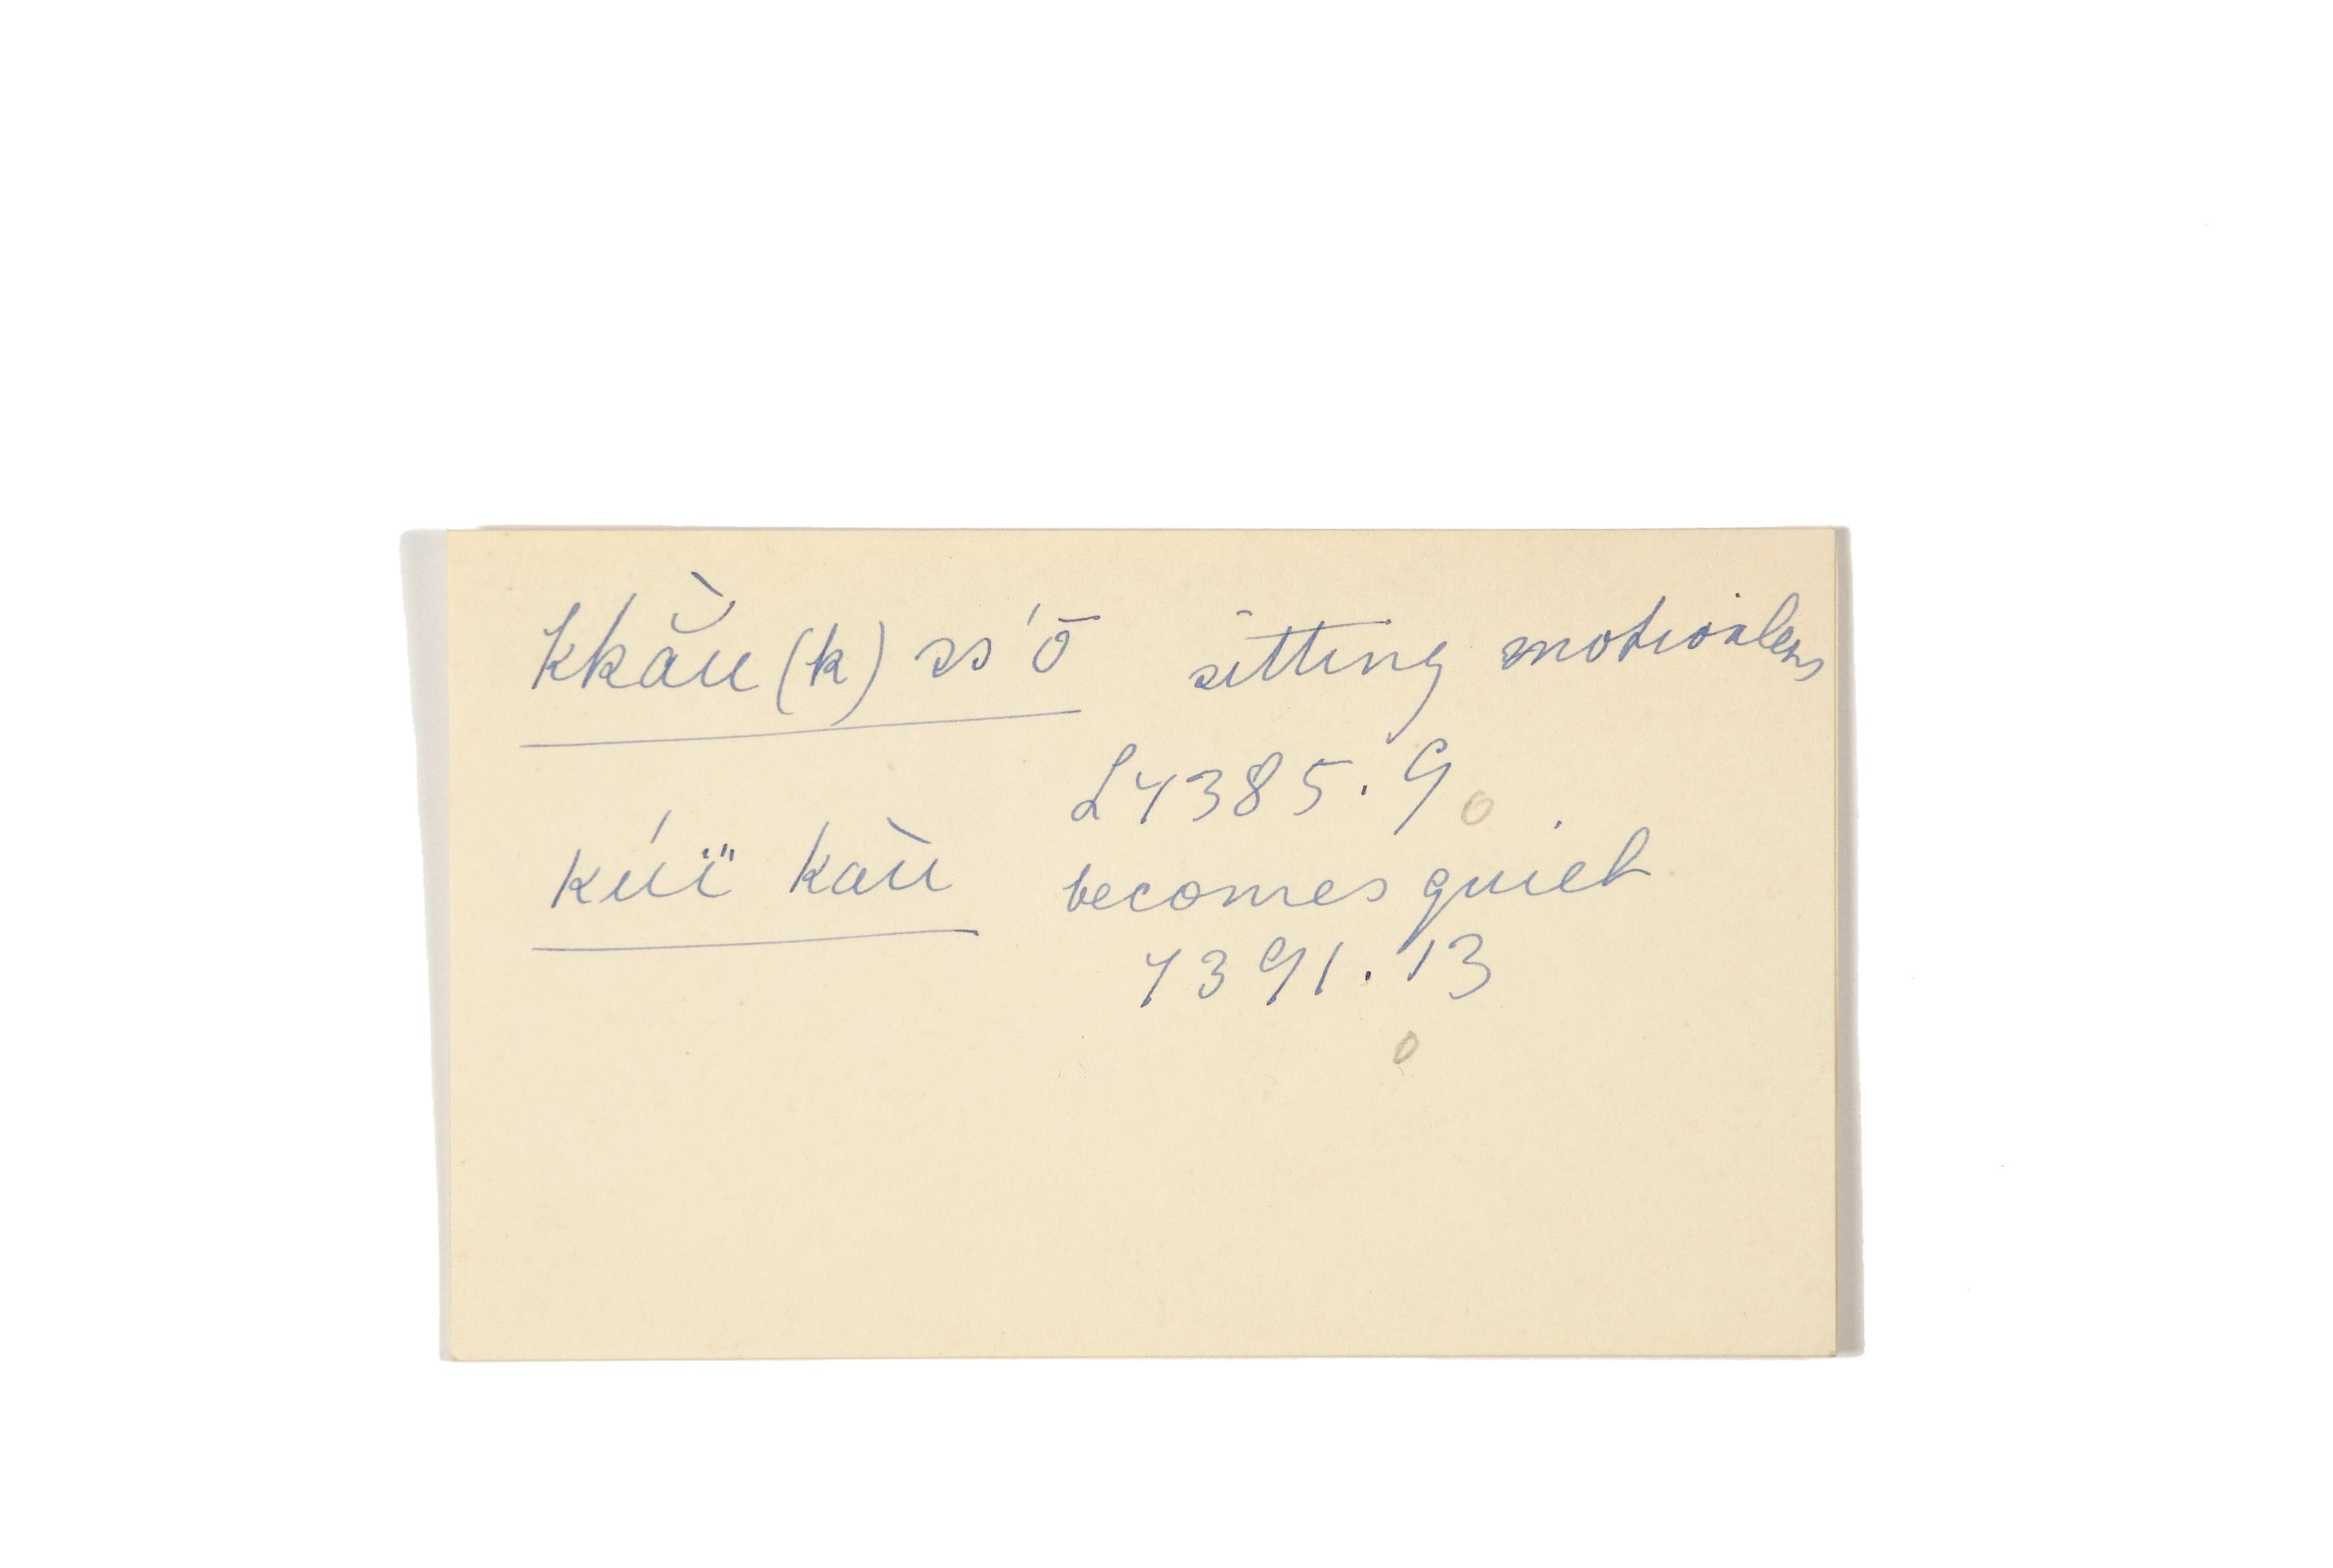 kkā̀̆u (k) ss'ō sitting motionless
L4385.9 0
kúï" kaù becomes quiet
4391.13
0